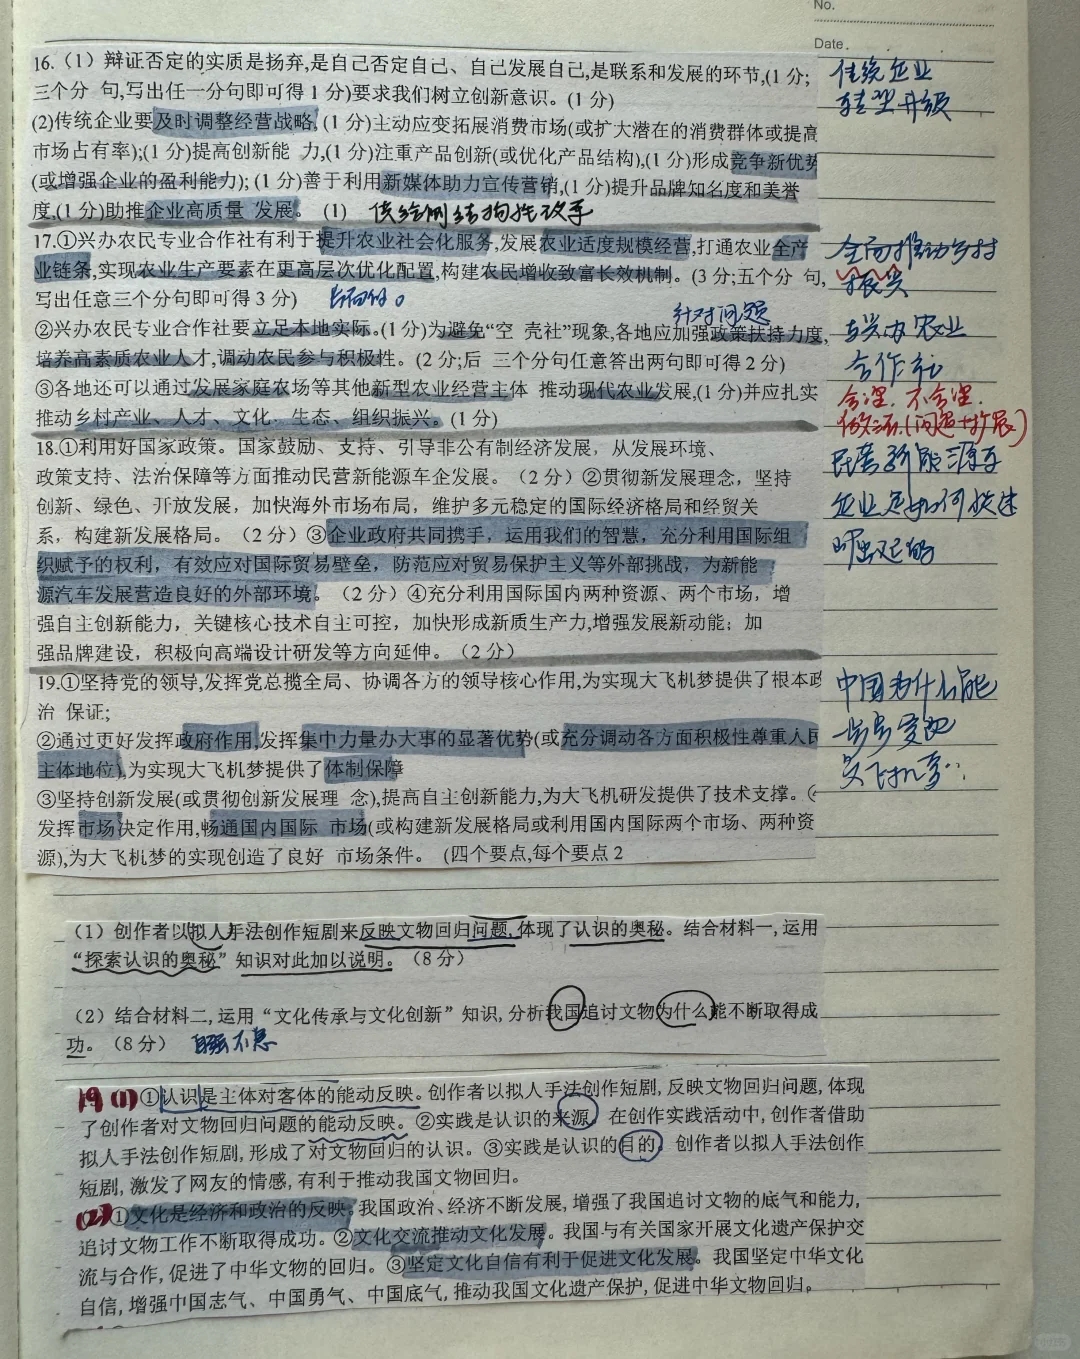 No.
Date.
16.（1）辩证否定的实质是扬弃,是自己否定自己、自己发展自己,是联系和发展的环节,(1 分;
三个分 句,写出任一分句即可得 1 分)要求我们树立创新意识。(1 分)
(2)传统企业要及时调整经营战略,(1 分)主动应变拓展消费市场(或扩大潜在的消费群体或提高
市场占有率);(1 分)提高创新能 力,(1 分)注重产品创新(或优化产品结构),(1 分)形成竞争新优势
(或增强企业的盈利能力);(1 分)善于利用新媒体助力宣传营销,(1 分)提升品牌知名度和美誉
度,(1 分)助推企业高质量 发展。 (1) 供给侧结构性改革
传统企业
转型升级
17.①兴办农民专业合作社有利于提升农业社会化服务,发展农业适度规模经营,打通农业全产
业链条,实现农业生产要素在更高层次优化配置,构建农民增收致富长效机制。(3 分;五个分 句,
写出任意三个分句即可得 3 分)
针对问题
②兴办农民专业合作社要立足本地实际。(1 分)为避免“空 壳社”现象,各地应加强政策扶持力度,
培养高素质农业人才,调动农民参与积极性。(2 分;后 三个分句任意答出两句即可得 2 分)
③各地还可以通过发展家庭农场等其他新型农业经营主体 推动现代农业发展,(1 分)并应扎实
推动乡村产业、人才、文化、生态、组织振兴。(1 分)
全面推动乡村
振兴
兴办农业
合作社
合理. 不合理.
做法.(问题+扩展)
18.①利用好国家政策。国家鼓励、支持、引导非公有制经济发展，从发展环境、
政策支持、法治保障等方面推动民营新能源车企发展。（2 分）②贯彻新发展理念，坚持
创新、绿色、开放发展，加快海外市场布局，维护多元稳定的国际经济格局和经贸关
系，构建新发展格局。（2 分）③企业政府共同携手，运用我们的智慧，充分利用国际组
织赋予的权利，有效应对国际贸易壁垒，防范应对贸易保护主义等外部挑战，为新能
源汽车发展营造良好的外部环境。（2 分）④充分利用国际国内两种资源、两个市场，增
强自主创新能力，关键核心技术自主可控，加快形成新质生产力,增强发展新动能；加
强品牌建设，积极向高端设计研发等方向延伸。（2 分）
民营新能源车
企业是如何快速
崛起的
19.①坚持党的领导,发挥党总揽全局、协调各方的领导核心作用,为实现大飞机梦提供了根本政
治 保证;
②通过更好发挥政府作用,发挥集中力量办大事的显著优势(或充分调动各方面积极性尊重人民
主体地位),为实现大飞机梦提供了体制保障
③坚持创新发展(或贯彻创新发展理 念),提高自主创新能力,为大飞机研发提供了技术支撑。④
发挥市场决定作用,畅通国内国际 市场(或构建新发展格局或利用国内国际两个市场、两种资
源),为大飞机梦的实现创造了良好 市场条件。 (四个要点,每个要点 2
中国为什么能
步步实现
大飞机梦
（1）创作者以拟人手法创作短剧来反映文物回归问题,体现了认识的奥秘。结合材料一,运用
“探索认识的奥秘”知识对此加以说明。（8 分）
（2）结合材料二,运用“文化传承与文化创新”知识,分析我国追讨文物为什么能不断取得成
功。（8 分） 自强不息
19 (1) ①认识是主体对客体的能动反映。创作者以拟人手法创作短剧, 反映文物回归问题, 体现
了创作者对文物回归问题的能动反映。②实践是认识的来源。在创作实践活动中, 创作者借助
拟人手法创作短剧, 形成了对文物回归的认识。③实践是认识的目的。创作者以拟人手法创作
短剧, 激发了网友的情感, 有利于推动我国文物回归。
(2) ①文化是经济和政治的反映。我国政治、经济不断发展, 增强了我国追讨文物的底气和能力,
追讨文物工作不断取得成功。②文化交流推动文化发展。我国与有关国家开展文化遗产保护交
流与合作, 促进了中华文物的回归。③坚定文化自信有利于促进文化发展。我国坚定中华文化
自信, 增强中国志气、中国勇气、中国底气, 推动我国文化遗产保护, 促进中华文物回归。